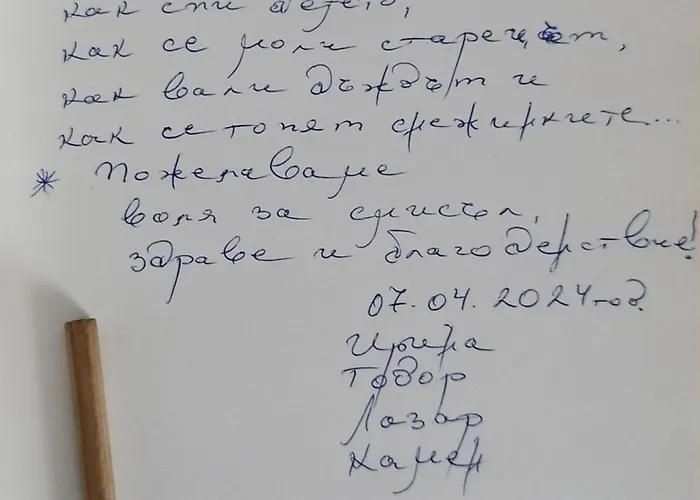 как спи детето,
как се моли старецът,
как вали дъждът и
как се топят снежинките...
* Пожелаваме
воля за смисъл,
здраве и благоденствие!
07.04.2024 год.
Ирина
Тодор
Лазар
Камен